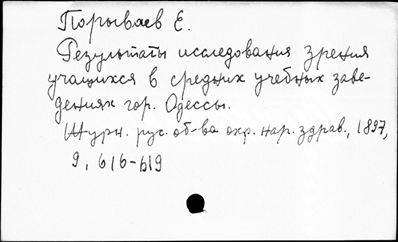 Порываев Е.
Результаты исследования зрения
учащихся в средних учебных заве-
дениях гор. Одессы.
Журн. рус. об-ва охр. нар. здрав., 1897,
9, 616-619